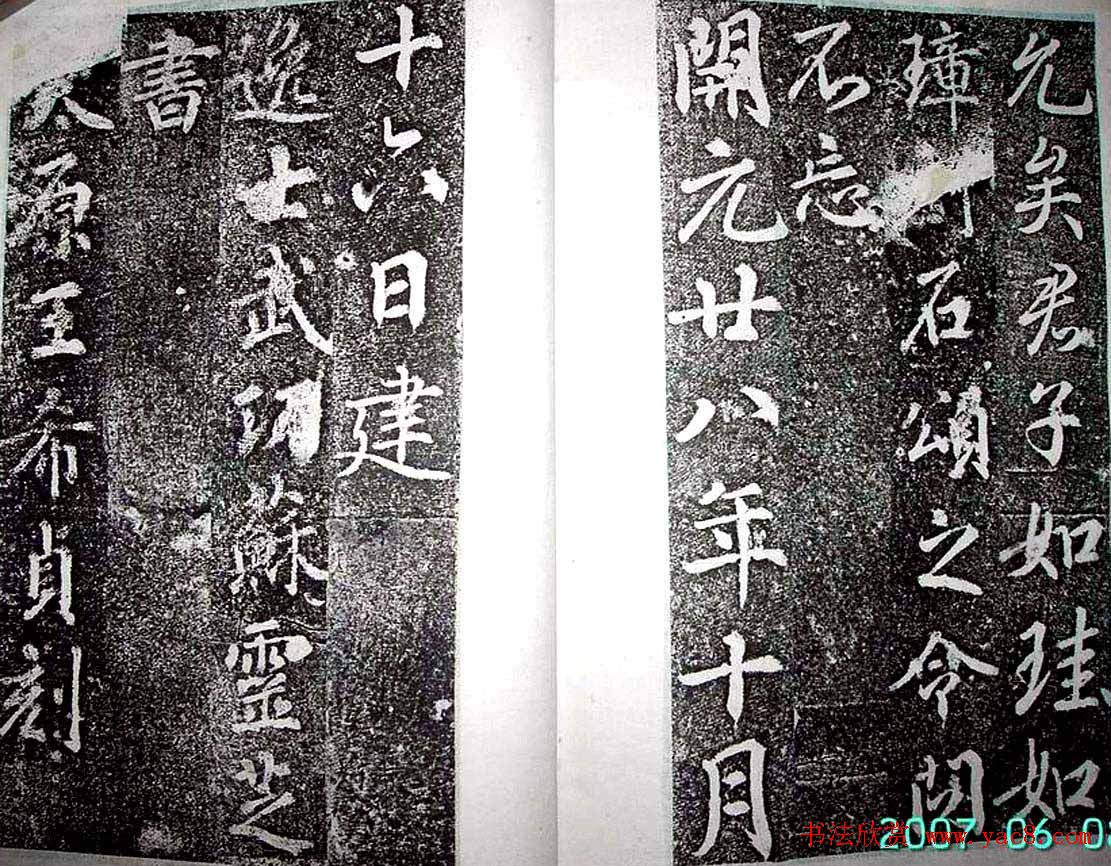 允矣君子如珪如
璋石頌之令問
不忘
開元廿八年十月
十六日建
逸士武功蘇靈芝
書
太原王希貞刻
书法欣赏 www.yac8.com
2007 06